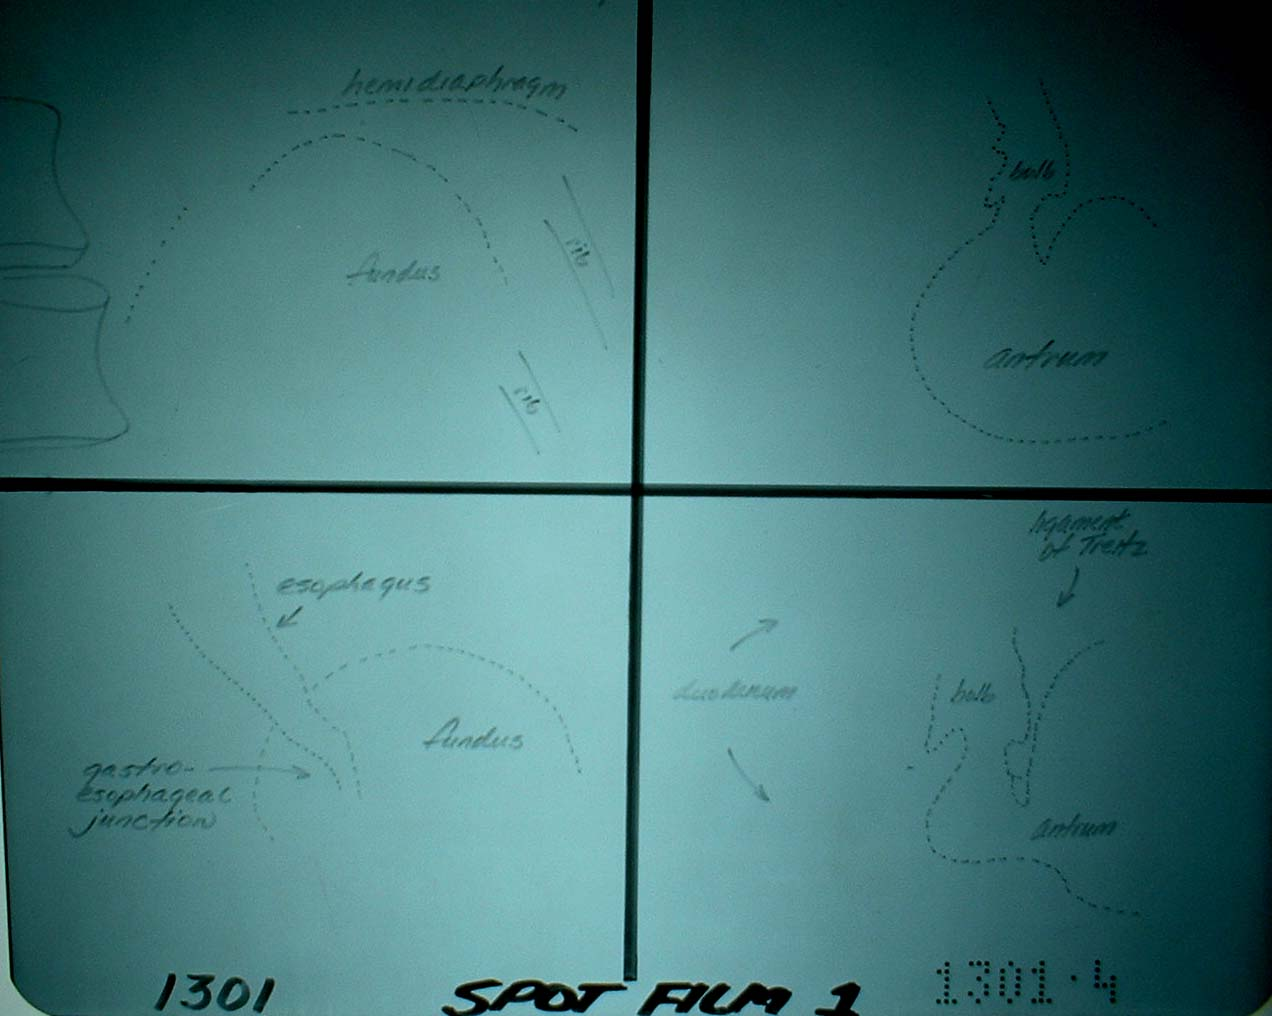 hemidiaphragm
fundus
rib
rib
bulb
antrum
esophagus
fundus
gastro-
esophageal
junction
ligament
of Treitz
duodenum
bulb
antrum
1301
SPOT FILM 1
1301·4